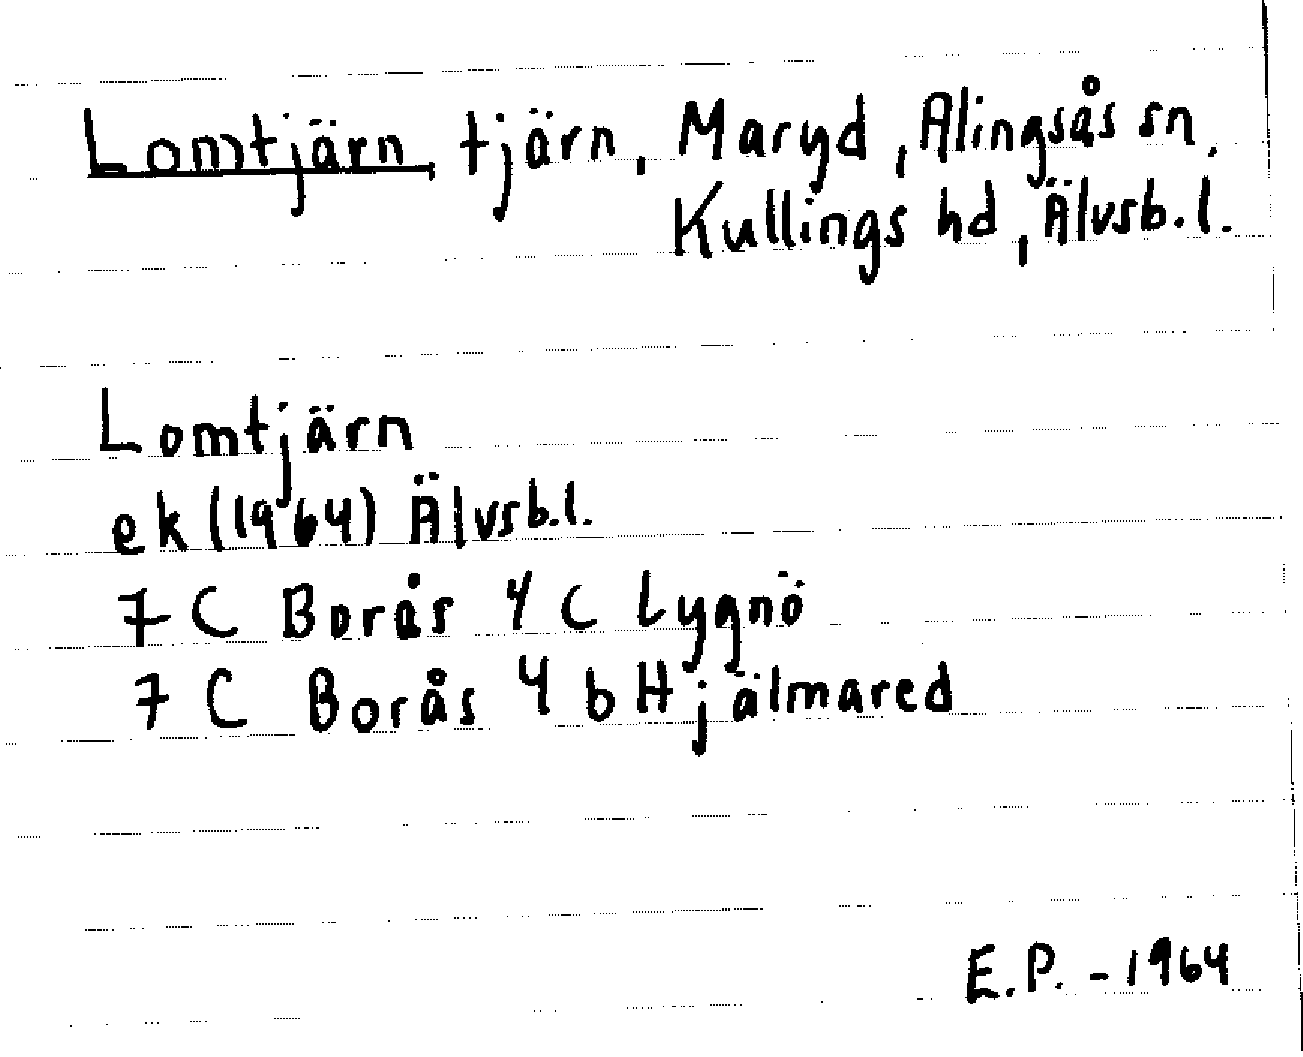 Lomtjärn, tjärn, Maryd, Alingsås sn,
Kullings hd, Älvsb.l.
Lomtjärn
ek (1964) Älvsb.l.
7 C Borås 4 C Lygnö
7 C Borås 4 b Hjälmared
E.P. - 1964